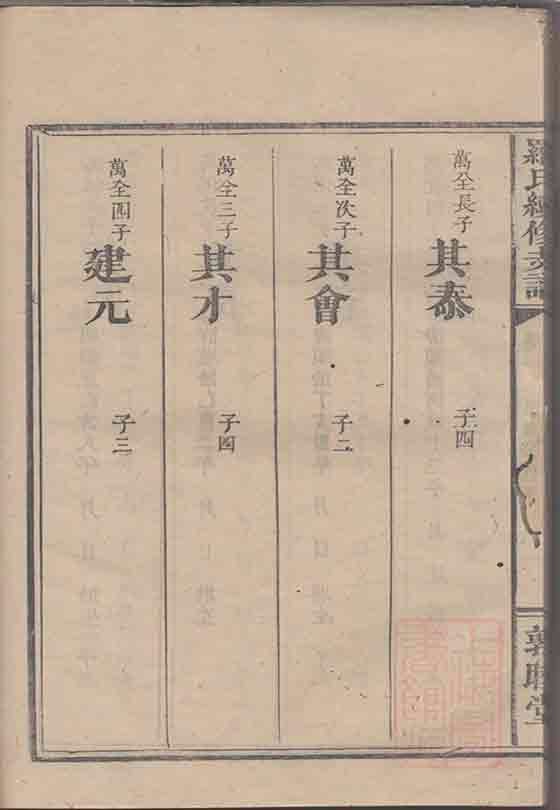 羅氏續修支譜
萬全長子
其泰
子四
萬全次子
其會
子二
萬全三子
其才
子四
萬全四子
建元
子三
敦睦堂
上海圖書館藏